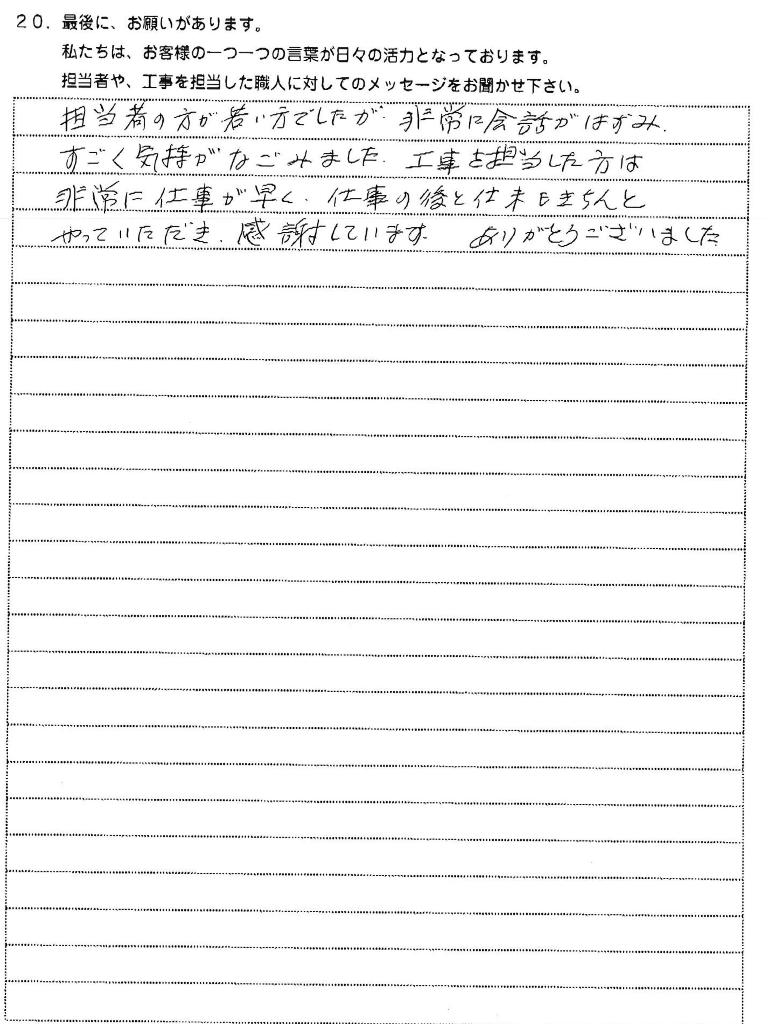 20. 最後に、お願いがあります。
私たちは、お客様の一つ一つの言葉が日々の活力となっております。
担当者や、工事を担当した職人に対してのメッセージをお聞かせ下さい。
担当者の方が若い方でしたが、非常に会話がはずみ、
すごく気持がなごみました。工事を担当した方は
非常に仕事が早く、仕事の後と仕末もきちんと
やっていただき、感謝しています。 ありがとうございました